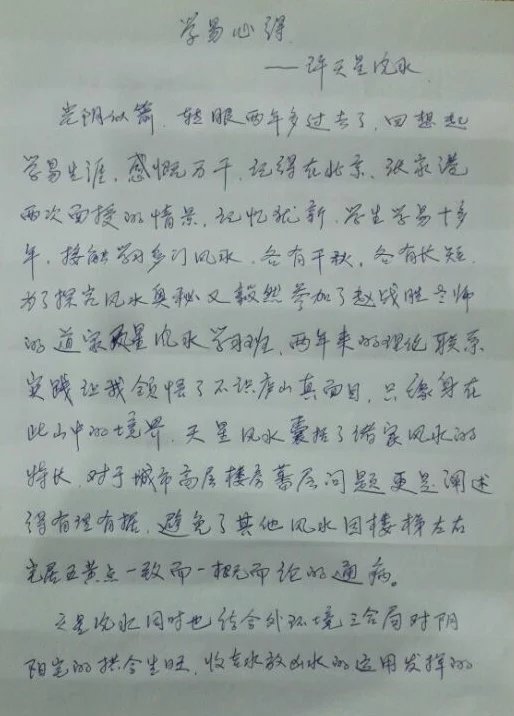 学易心得
——评天星风水
光阴似箭，转眼两年多过去了，回想起
学易生涯，感慨万千，记得在北京、张家港
两次面授的情景，记忆犹新，学生学易十多
年，接触学习多门风水，各有千秋，各有长短，
为了探究风水奥秘又毅然参加了赵战胜老师
的道家天星风水学习班，两年来的理论联系
实践让我领悟了不识庐山真面目，只缘身在
此山中的境界，天星风水囊括了诸家风水的
特长，对于城市高层楼房幕层问题更是阐述
得有理有据，避免了其他风水因楼梯左右
宅居五黄点一致而一概而论的通病。
天星风水同时也结合外环境三合局对阴
阳宅的拱合生旺，收吉水放凶水的运用发挥的